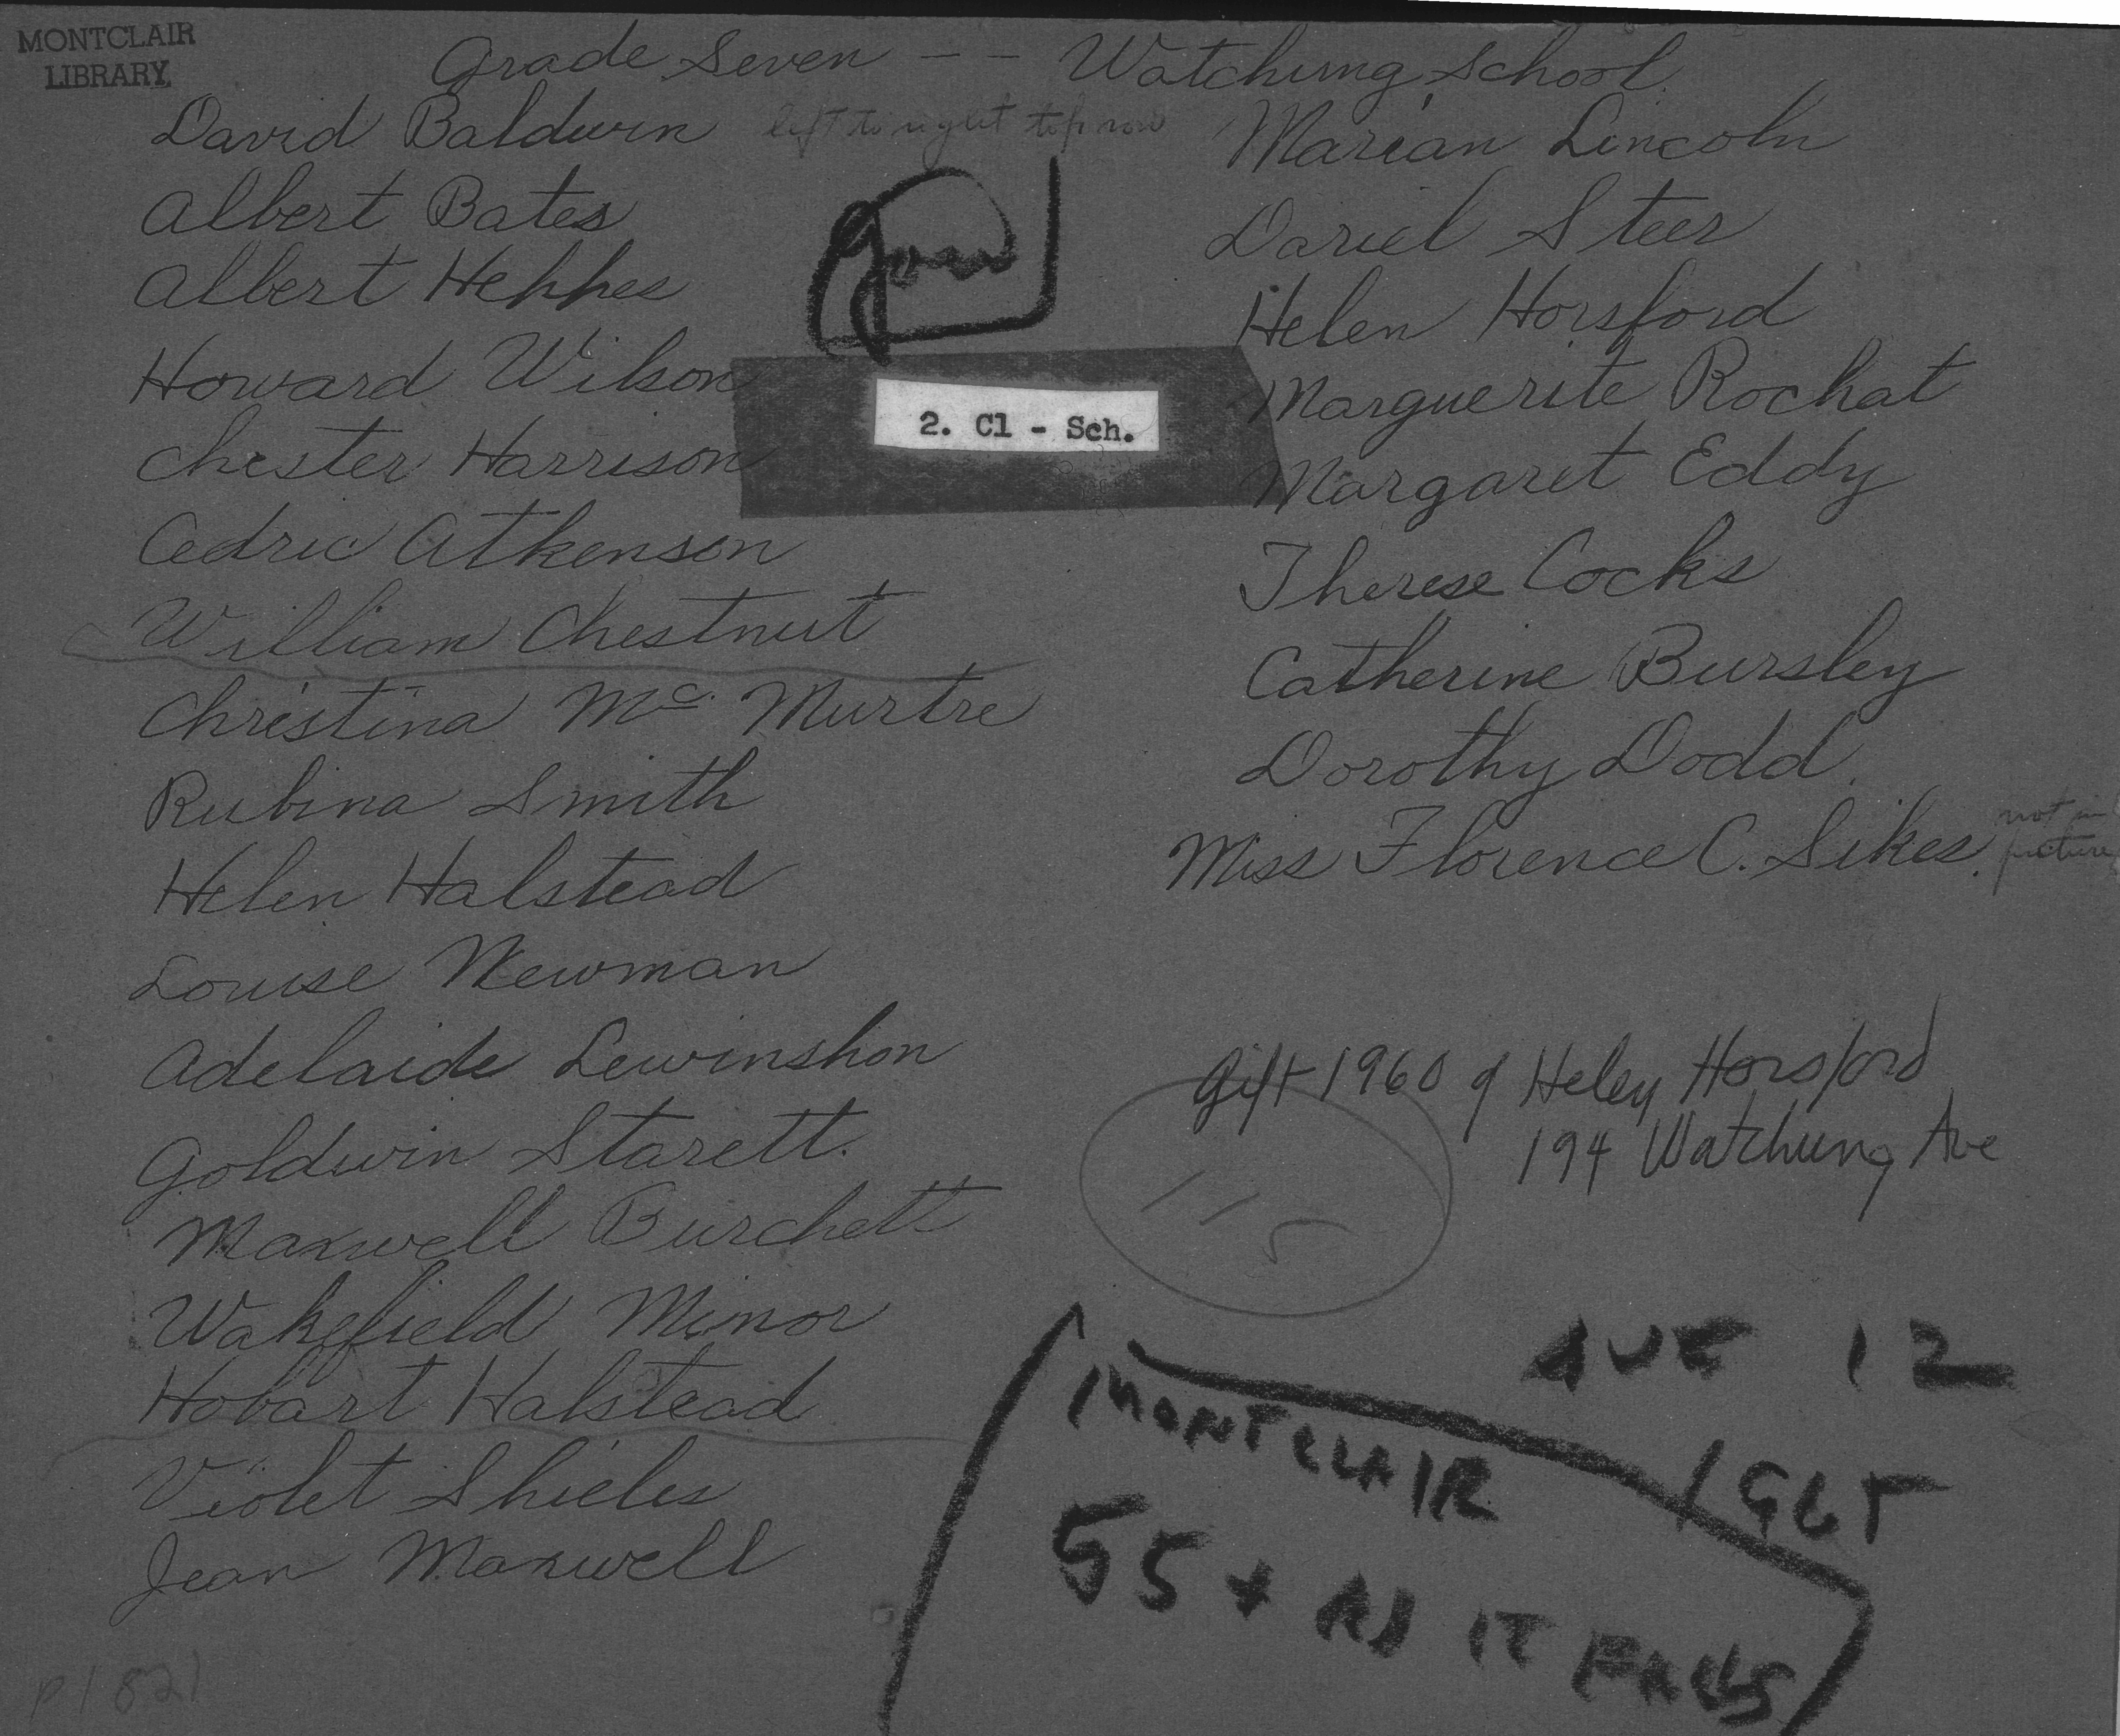 MONTCLAIR
LIBRARY
Grade Seven -- Watchung School.
David Baldwin left to right top row
Albert Bates
Albert Hephes
Howard Wilson
Chester Harrison
Cedric Atkenson
William Chestnut
Christina Mc. Murtre
Rubina Smith
Helen Halstead
Louise Newman
Adelaide Lewinshon
Goldwin Starett.
Maxwell Burchett
Wakefield Minor
Hobart Halstead
Violet Shieles
Jean Maxwell
2. Cl - Sch.
Marian Lincoln
Dariel Steer
Helen Horsford
Marguerite Rochat
Margaret Eddy
Therese Cocks
Catherine Bursley
Dorothy Dodd.
Miss Florence C. Sikes. not in picture
Gift 1960 of Helen Horsford
194 Watchung Ave
115
12
MONTCLAIR
55 + AS IT FALLS
P1821